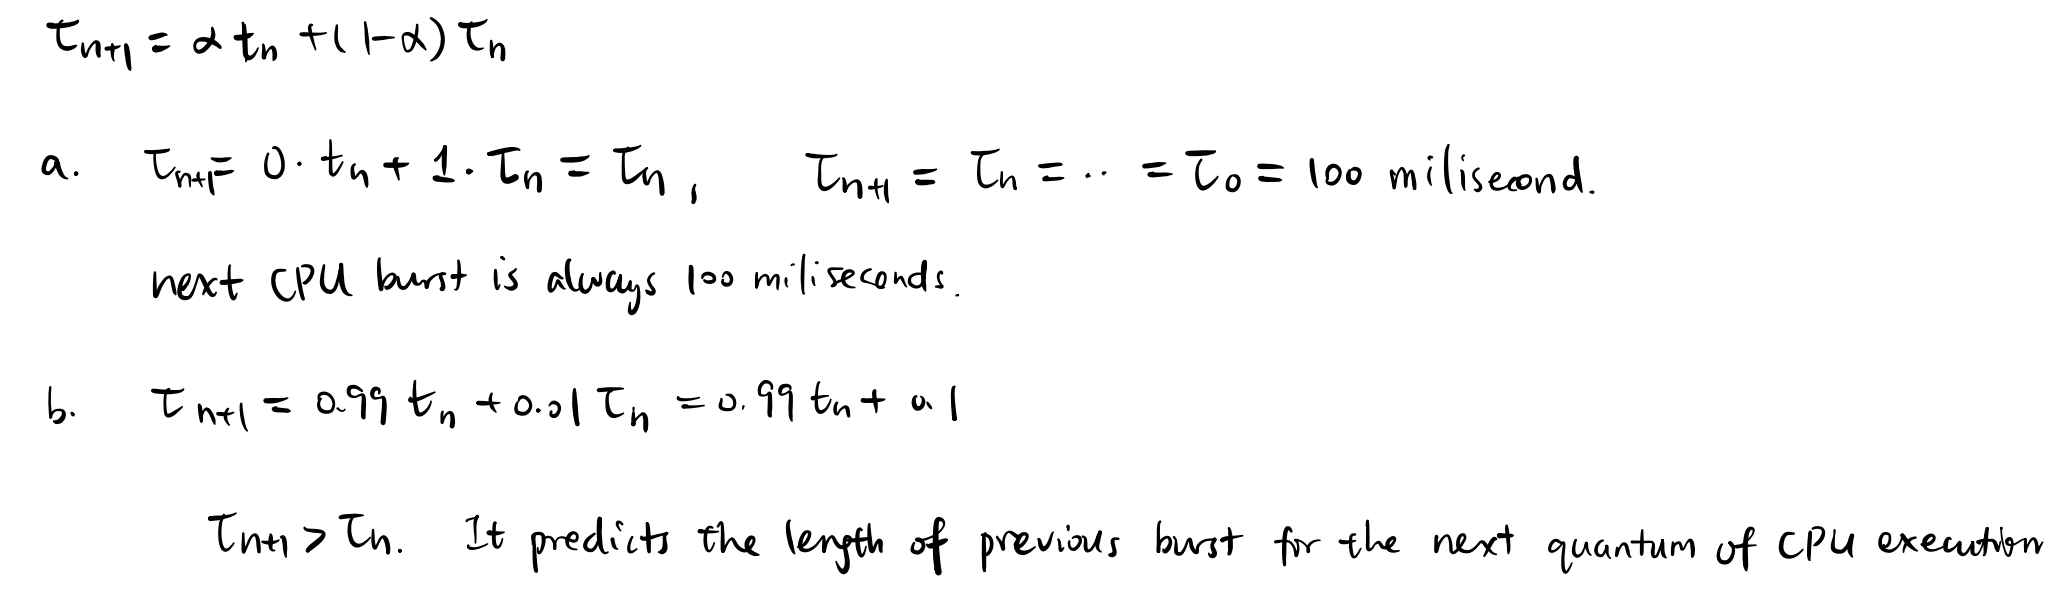 τn+1 = α tn + (1-α) τn
a. τn+1 = 0· tn + 1· τn = τn , τn+1 = τn = ·· = τ0 = 100 milisecond.
next CPU burst is always 100 miliseconds.
b. τn+1 = 0.99 tn + 0.01 τn = 0.99 tn + 0.1
τn+1 > τn. It predicts the length of previous burst for the next quantum of CPU execution